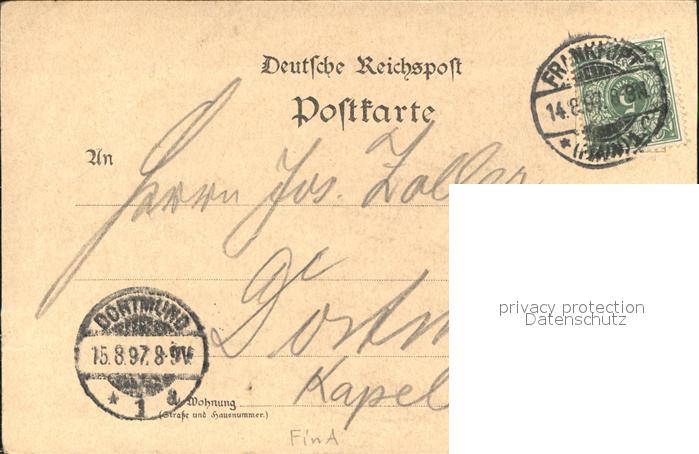 Deutsche Reichspost
Postkarte
FRANKFURT
14.8.97.
(MAIN)
An
Herrn Jos. Zoller
privacy protection
Datenschutz
Dortm
Kapel
DORTMUND
15.8.97. 8-9V.
* 1 a
Wohnung
(Straße und Hausnummer.)
FinA